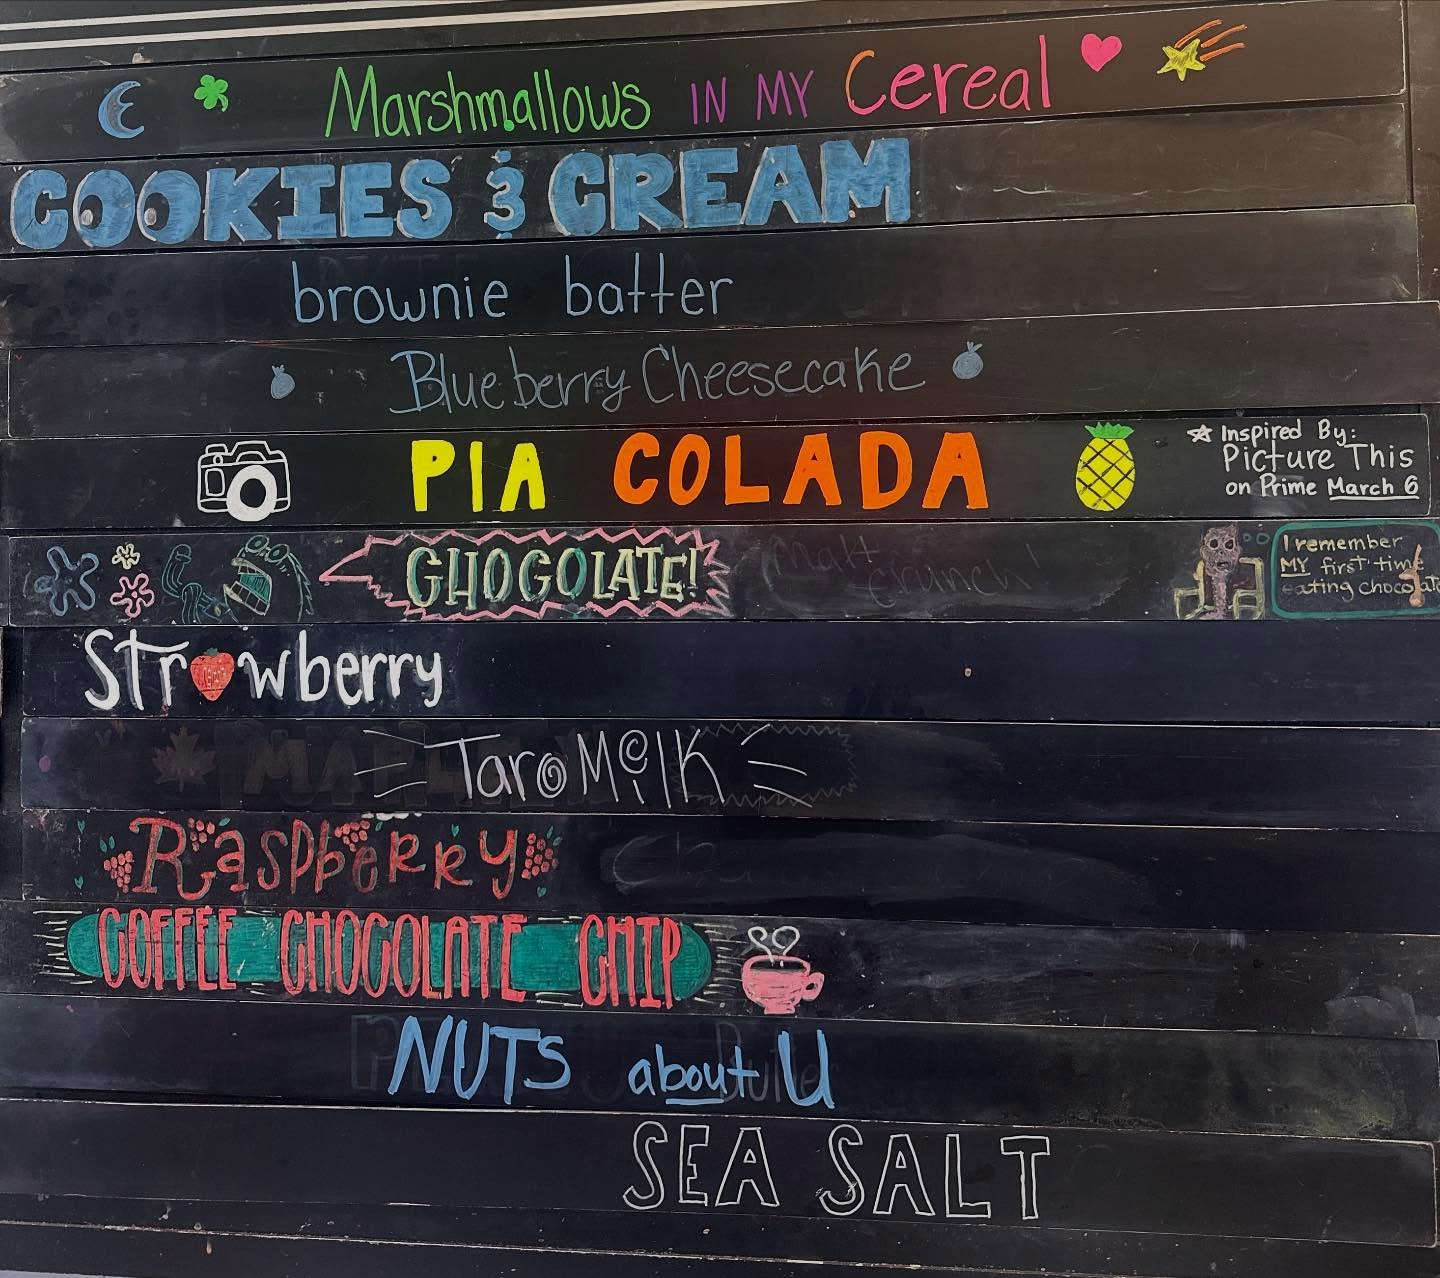 Marshmallows IN MY Cereal
COOKIES & CREAM
brownie batter
Blueberry Cheesecake
PIA COLADA
Inspired By:
Picture This
on Prime March 6
CHOCOLATE!
Matt
crunch!
I remember
MY first time
eating chocolate
Strawberry
Taro Milk
Raspberry
COFFEE CHOCOLATE CHIP
NUTS about U
SEA SALT